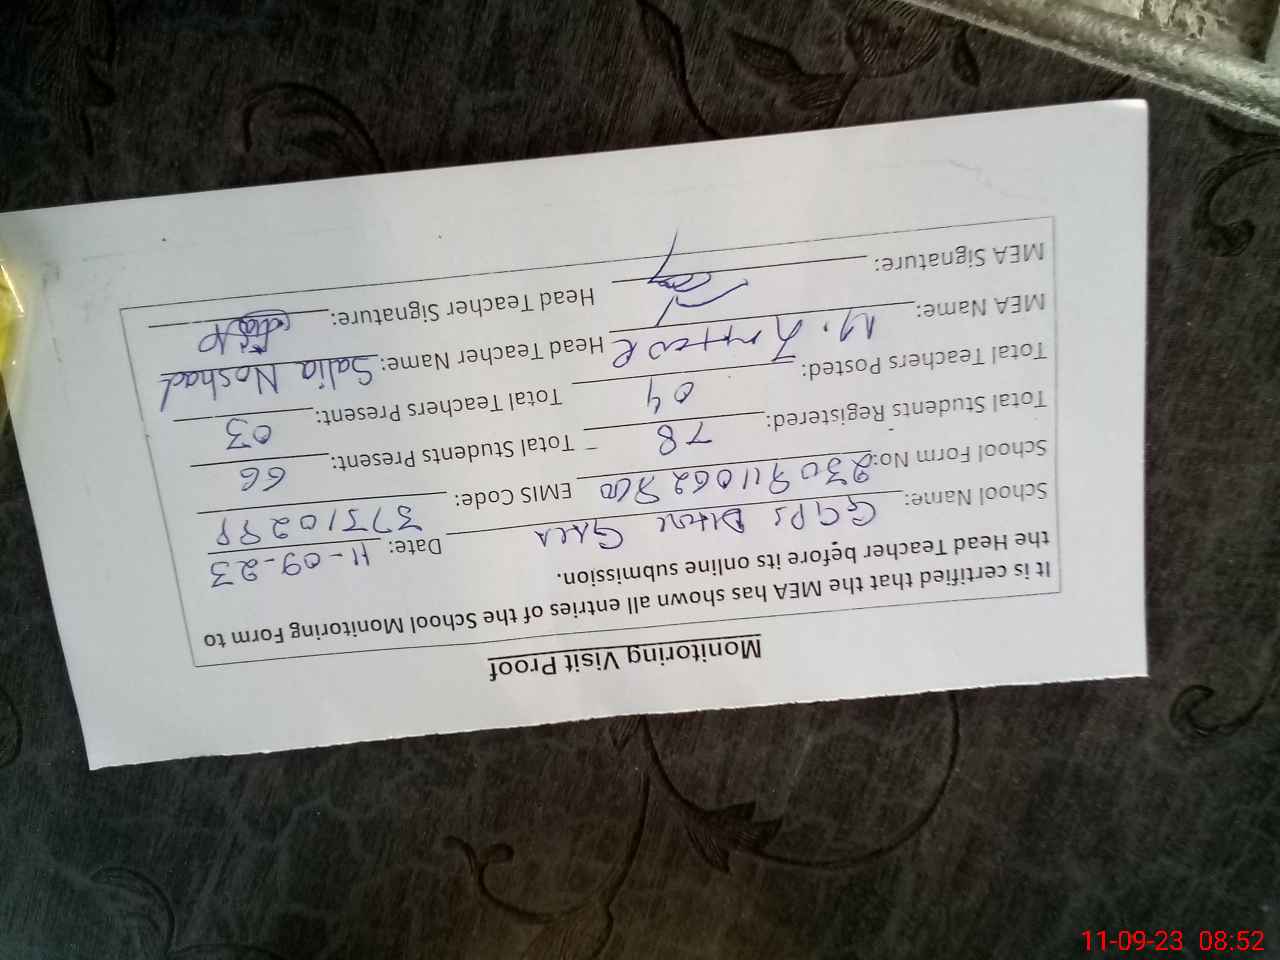 Monitoring Visit Proof
It is certified that the MEA has shown all entries of the School Monitoring Form to
the Head Teacher before its online submission.
School Name: GGPS Date: 11-09-23
School Form No: EMIS Code: 37310299
Total Students Registered: 78 Total Students Present: 66
Total Teachers Posted: 04 Total Teachers Present: 03
MEA Name: M. Head Teacher Name: Salia Noshad
MEA Signature: Head Teacher Signature:
11-09-23 08:52